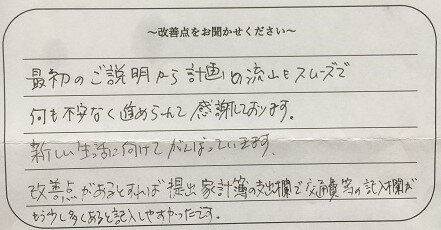 ～改善点をお聞かせください～
最初のご説明から計画の流れもスムーズで
何も不安なく進められて感謝しております。
新しい生活に向けてがんばっていきます。
改善点があるとすれば提出家計簿の支出欄で交通費等の記入欄が
もう少し多くあると記入しやすかったです。